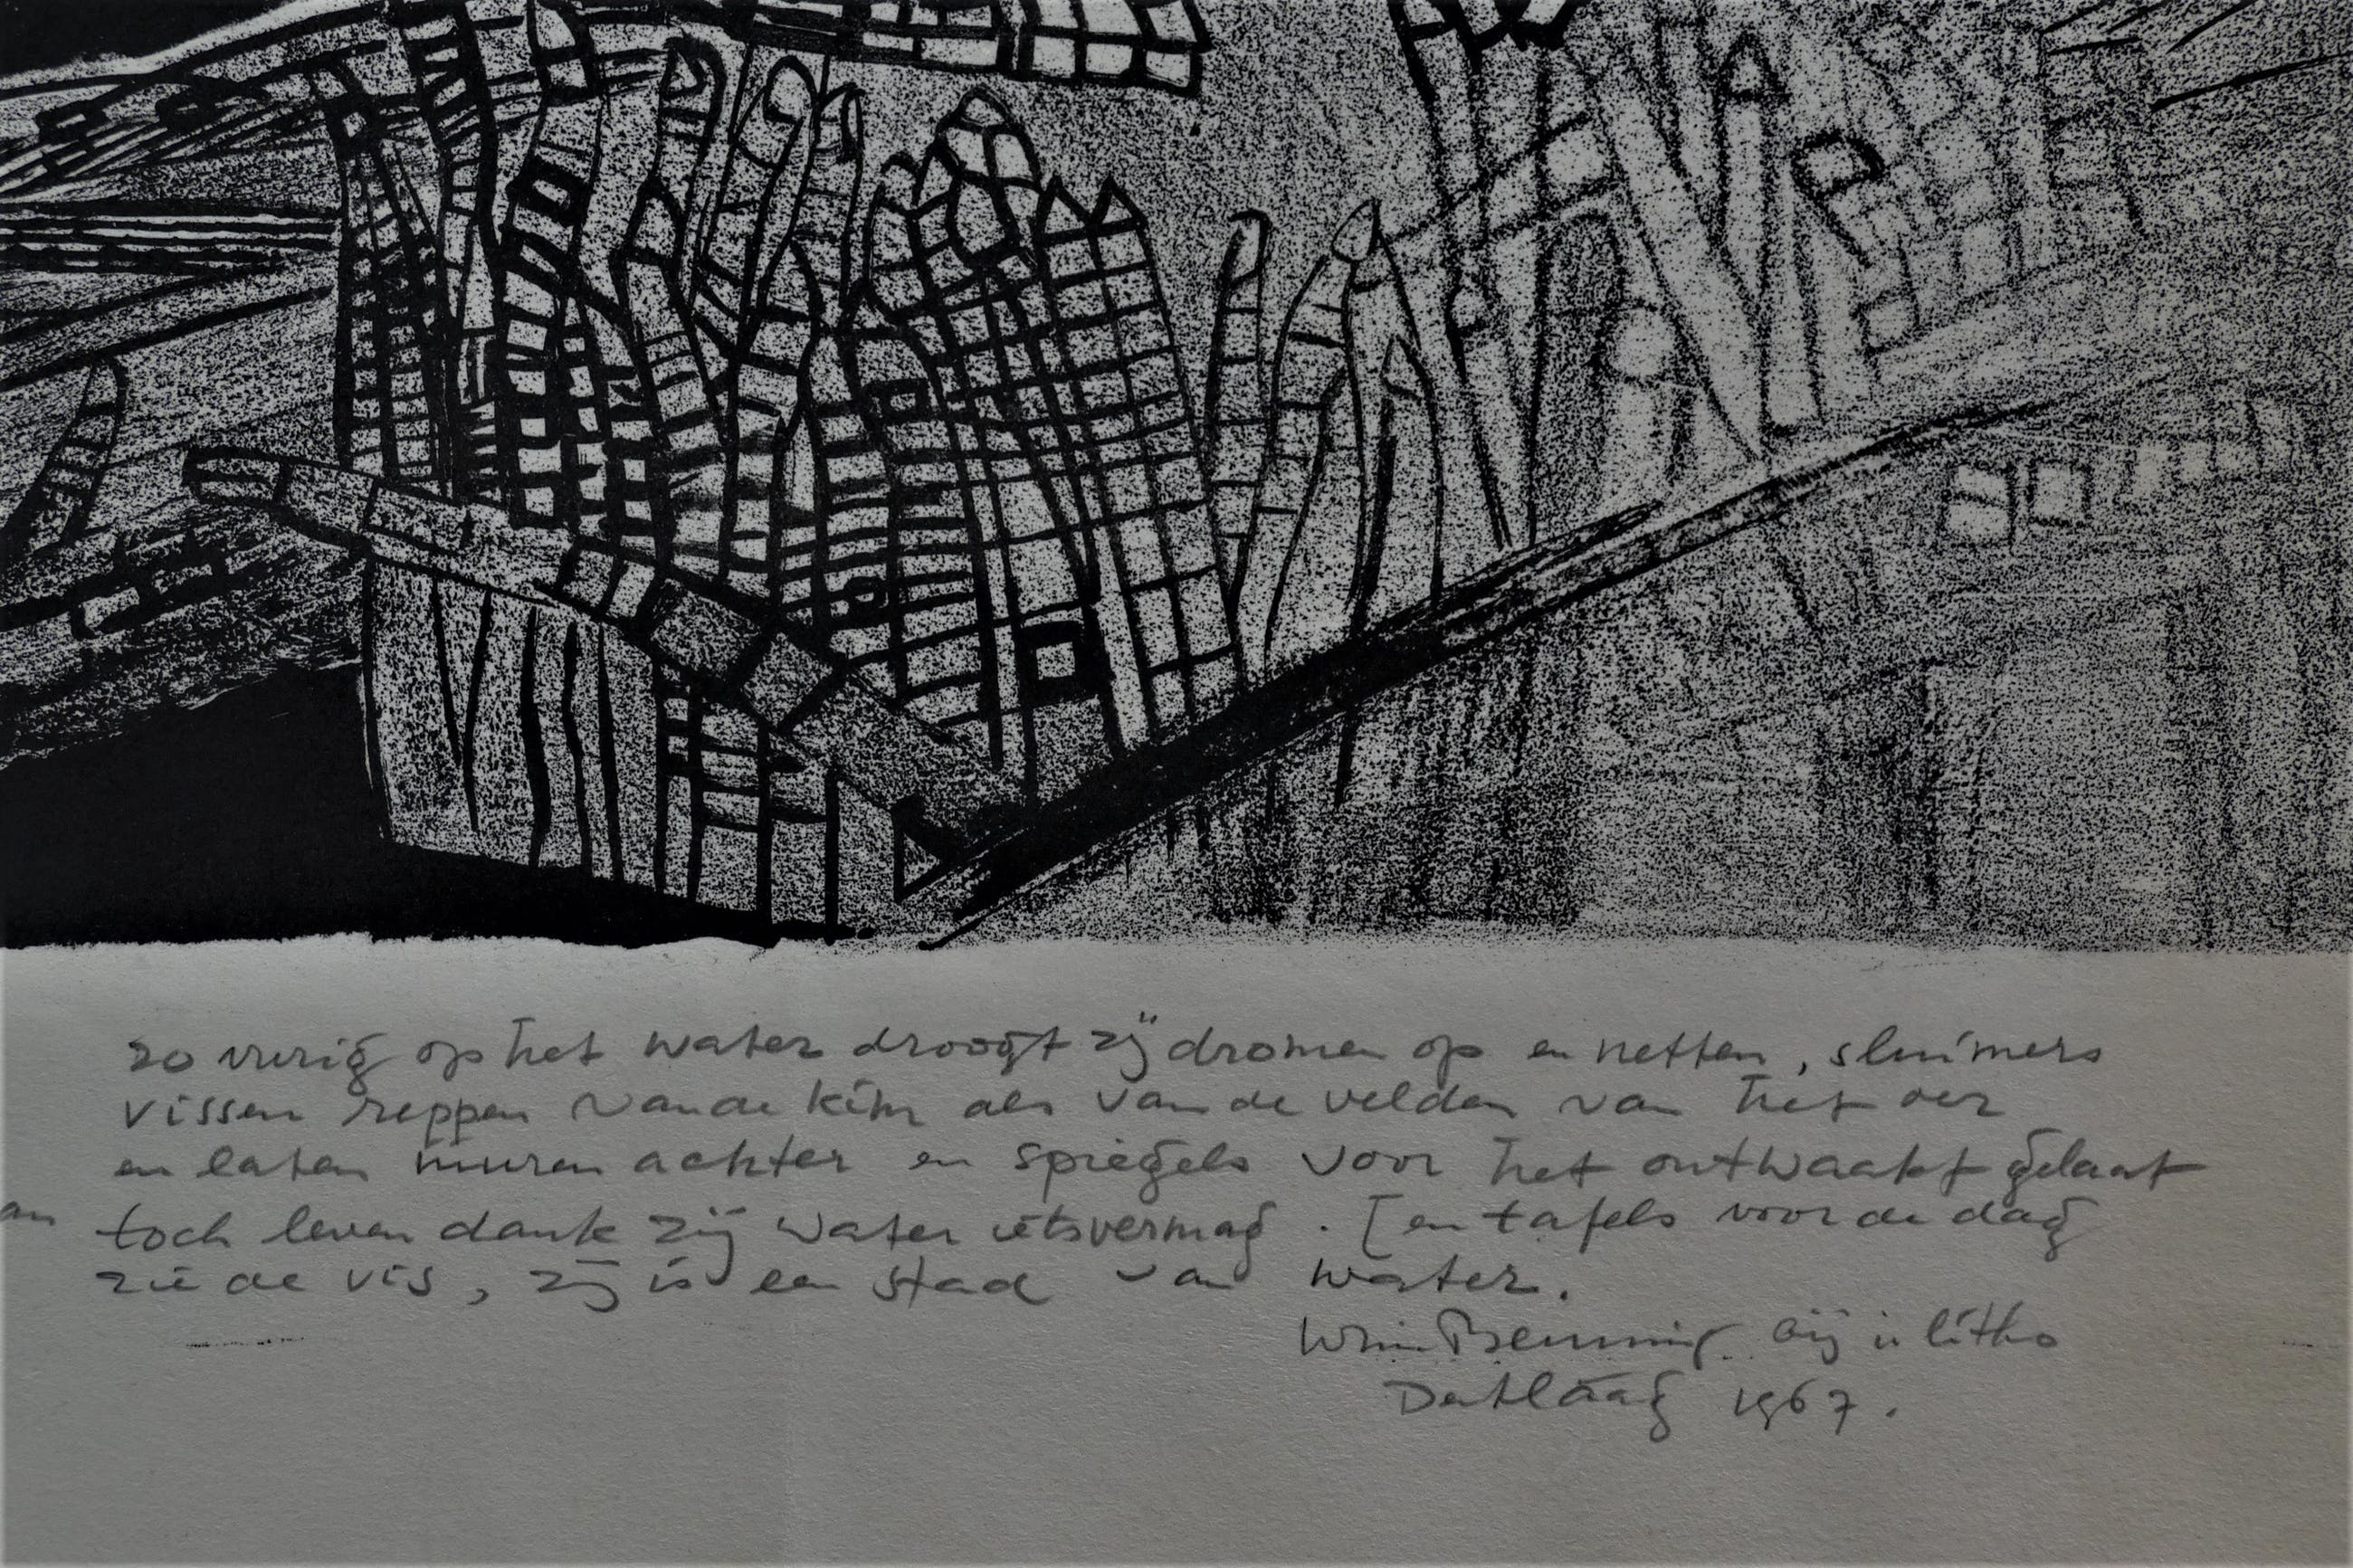 zo vurig op het water droogt zij dromen op en netten, sluimers
vissen reppen van de kim als van de velden van het oer
en laten muren achter en spiegels voor het ontwaakt gelaat
toch leven dank zij water iets vermag. [en tafels voor de dag
zie de vis, zij is een stad van water.
Wim bij 'n litho
1967.